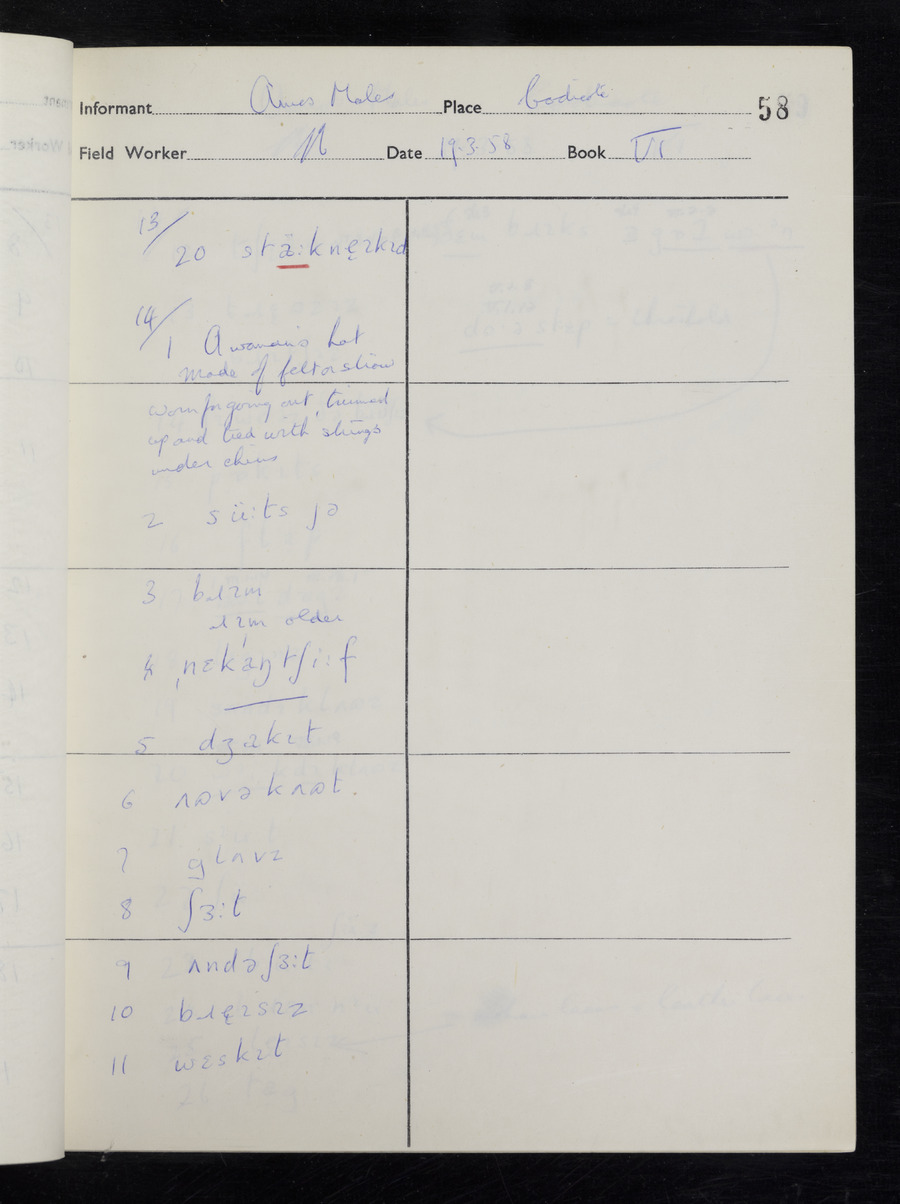 Informant Amos Males Place 58
Field Worker Date 19.3.58 Book VI
13/
20 stä:knẹɪkɪd
14/
1 A woman's hat
made of felt or straw
worn for going out, trimmed
up and tied with strings
under chins
2 sü:ts jə
3 bɹɪm
ɹɪm older
4 ˌnɛkˈaŋtʃi:f
5 dʒakɪt
6 ʌəvəkʌət.
7 glʌvz
8 ʃɜ:t
9 ʌndəʃɜ:t
10 bɹẹɪsɪz
11 wɛskɪt